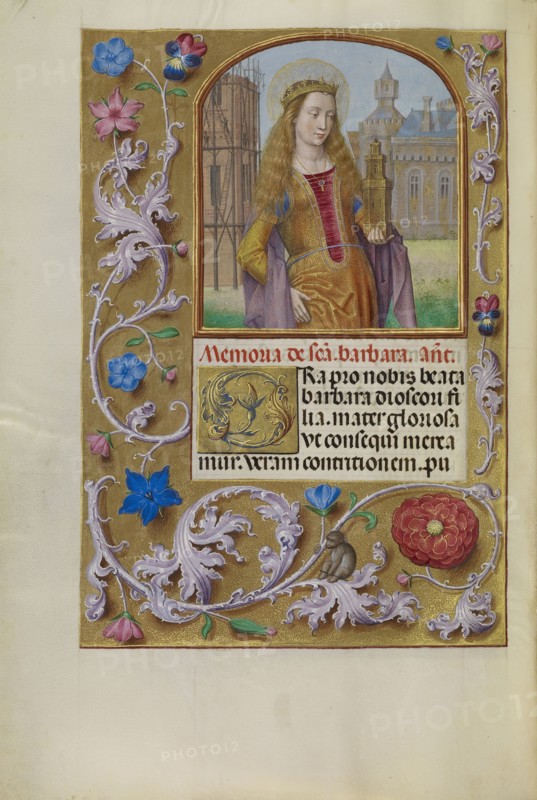 Memoria de scā. barbara. añt.
Ra pro nobis beata
barbara dioscori fi
lia. mater gloriosa
vt consequi merea
mur. veram contritionem. pu
PHOTO12